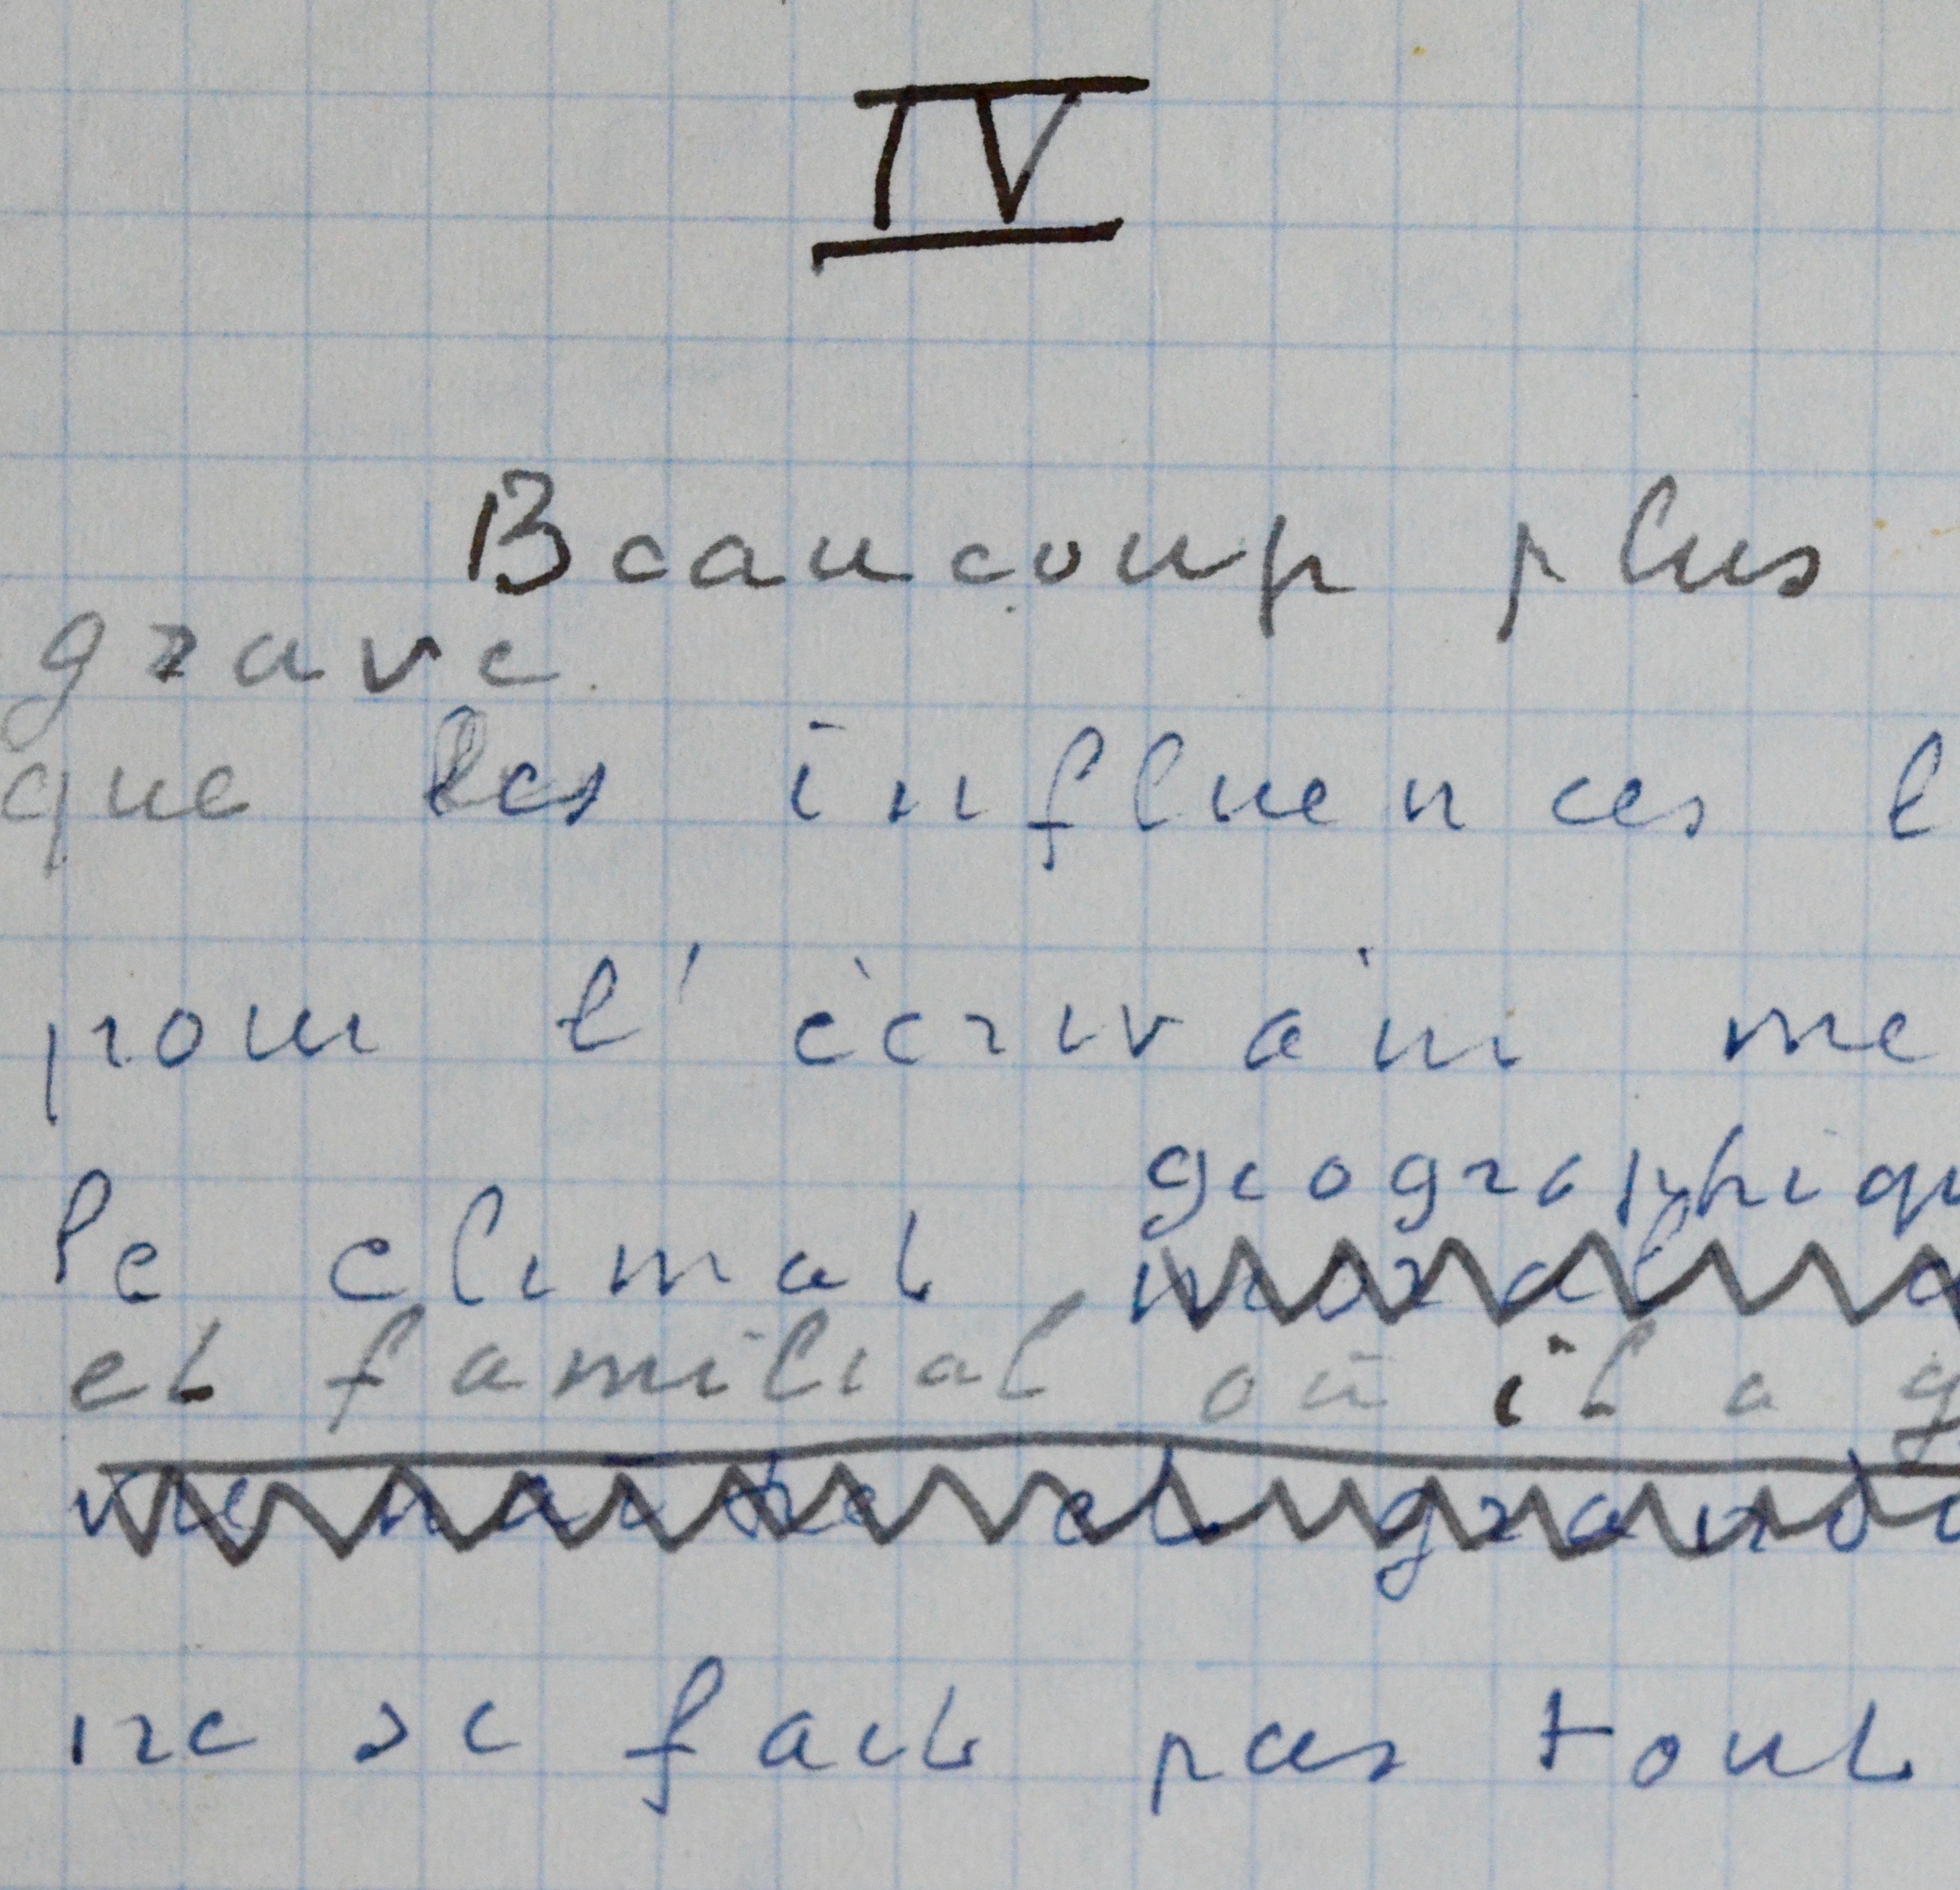 IV
Beaucoup plus
grave
que les influences l
pour l'écrivain me
géographiqu
le climat moral
et familial où il a g
naître et grandi
ne se fait pas tout